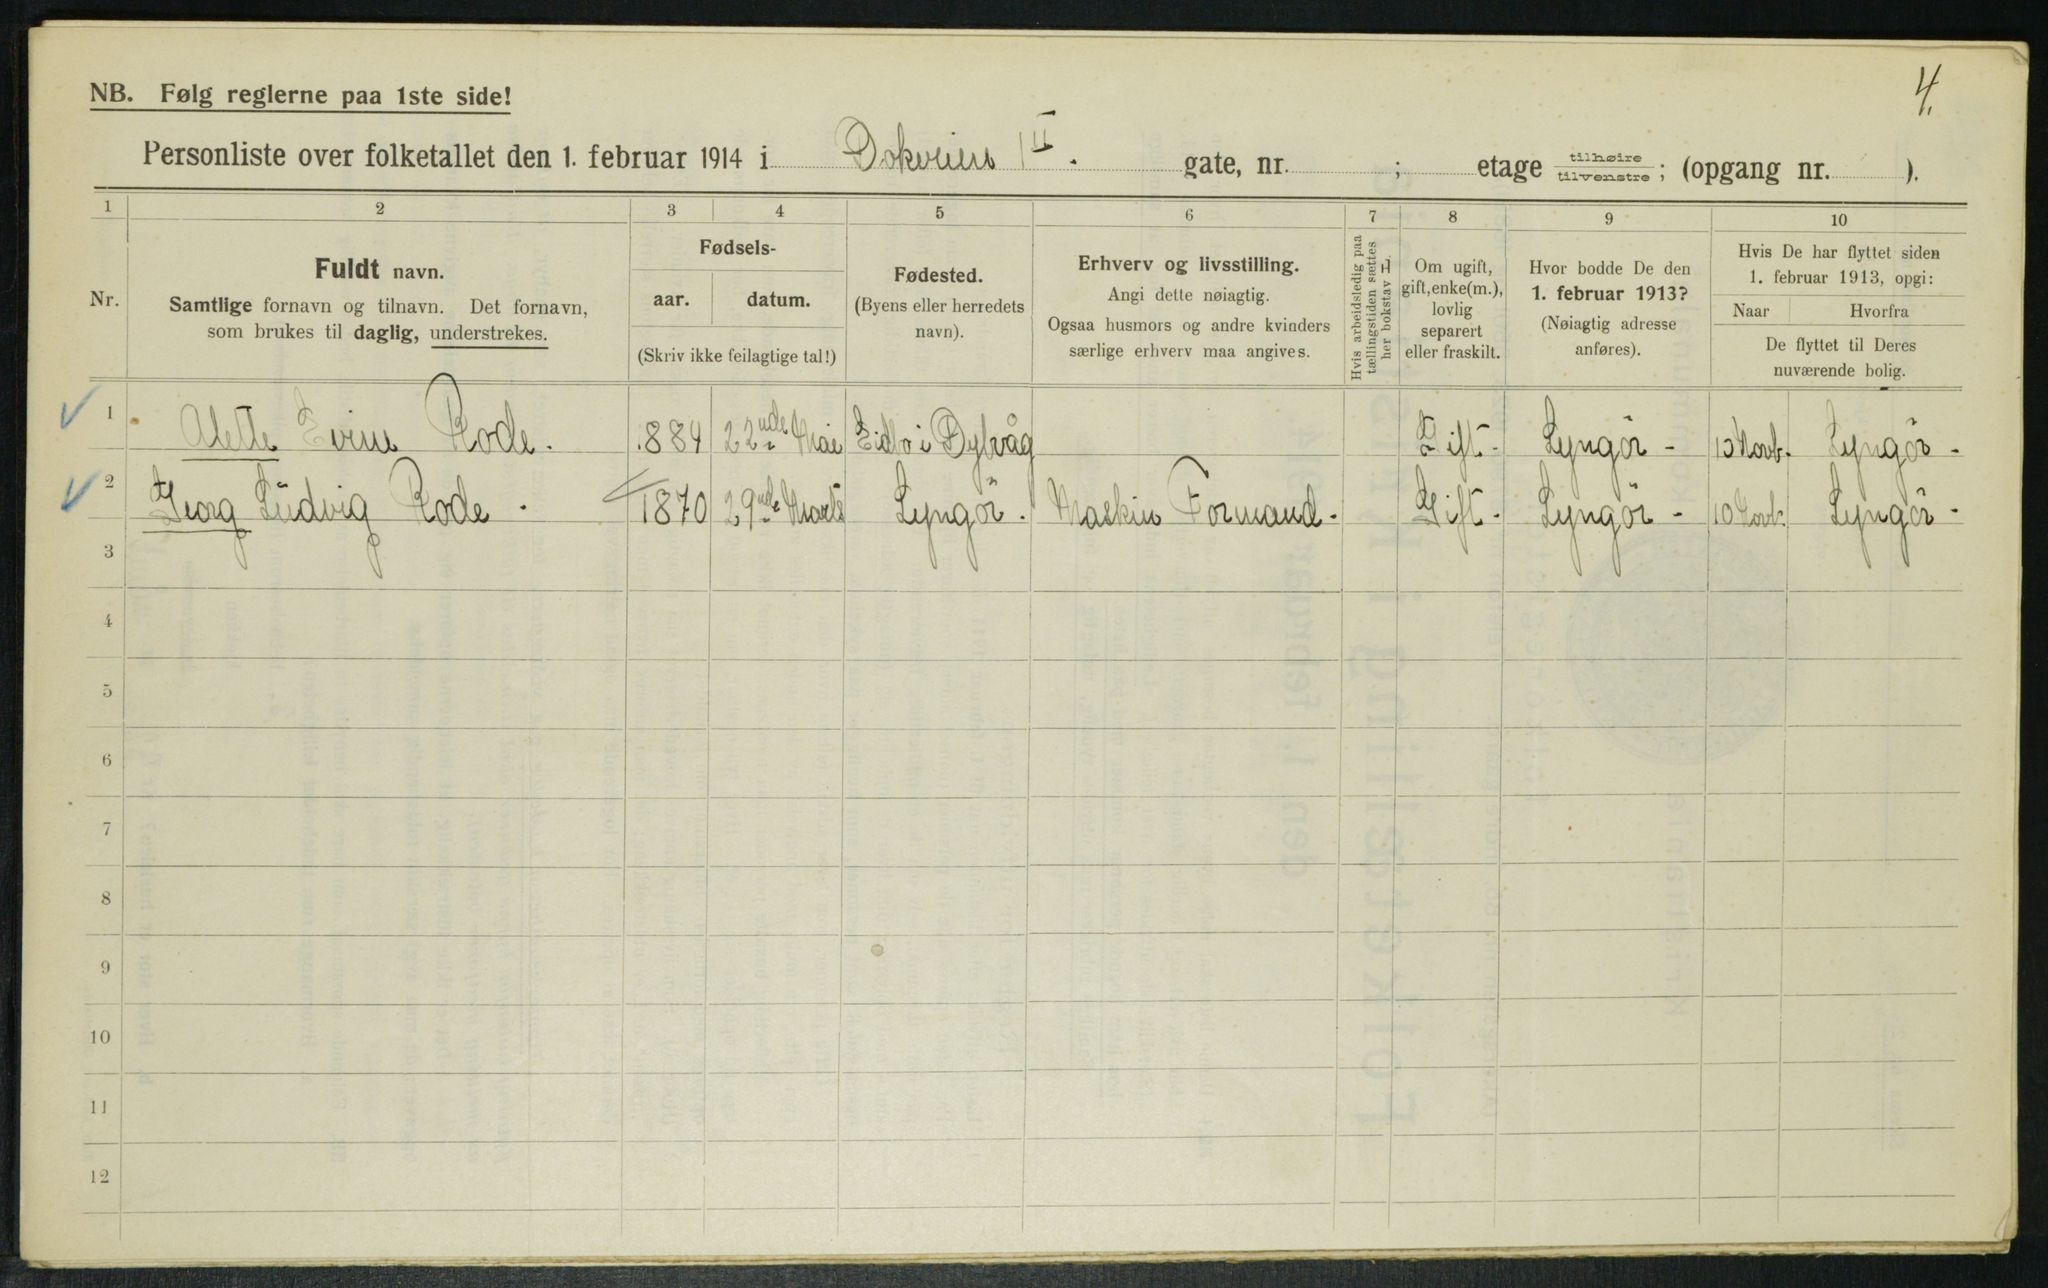 4.
NB. Følg reglerne paa 1ste side!
Personliste over folketallet den 1. februar 1914 i Dokveien 1 II. gate, nr. ; etage tilhøire tilvenstre ; (opgang nr. ).
1 2 3 4 5 6 7 8 9 10
Nr.
Fuldt navn.
Samtlige fornavn og tilnavn. Det fornavn,
som brukes til daglig, understrekes.
Fødsels-
aar. datum.
(Skriv ikke feilagtige tal!)
Fødested.
(Byens eller herredets
navn).
Erhverv og livsstilling.
Angi dette nøiagtig.
Ogsaa husmors og andre kvinders
særlige erhverv maa angives.
Hvis arbeidsledig paa
tællingstiden sættes
her bokstav L
Om ugift,
gift, enke(m.),
lovlig
separert
eller fraskilt.
Hvor bodde De den
1. februar 1913?
(Nøiagtig adresse
anføres).
Hvis De har flyttet siden
1. februar 1913, opgi:
Naar Hvorfra
De flyttet til Deres
nuværende bolig.
1 Alette Evine Rode. 1884 22nde Mai Eidbo i Dybvåg Gift - Lyngör - 10 Novb. Lyngör -
2 Georg Lüdvig Rode . 1870 29nde Marts Lyngör . Maskin Formand - Gift - Lyngör - 10 Novb. Lyngör -
3
4
5
6
7
8
9
10
11
12